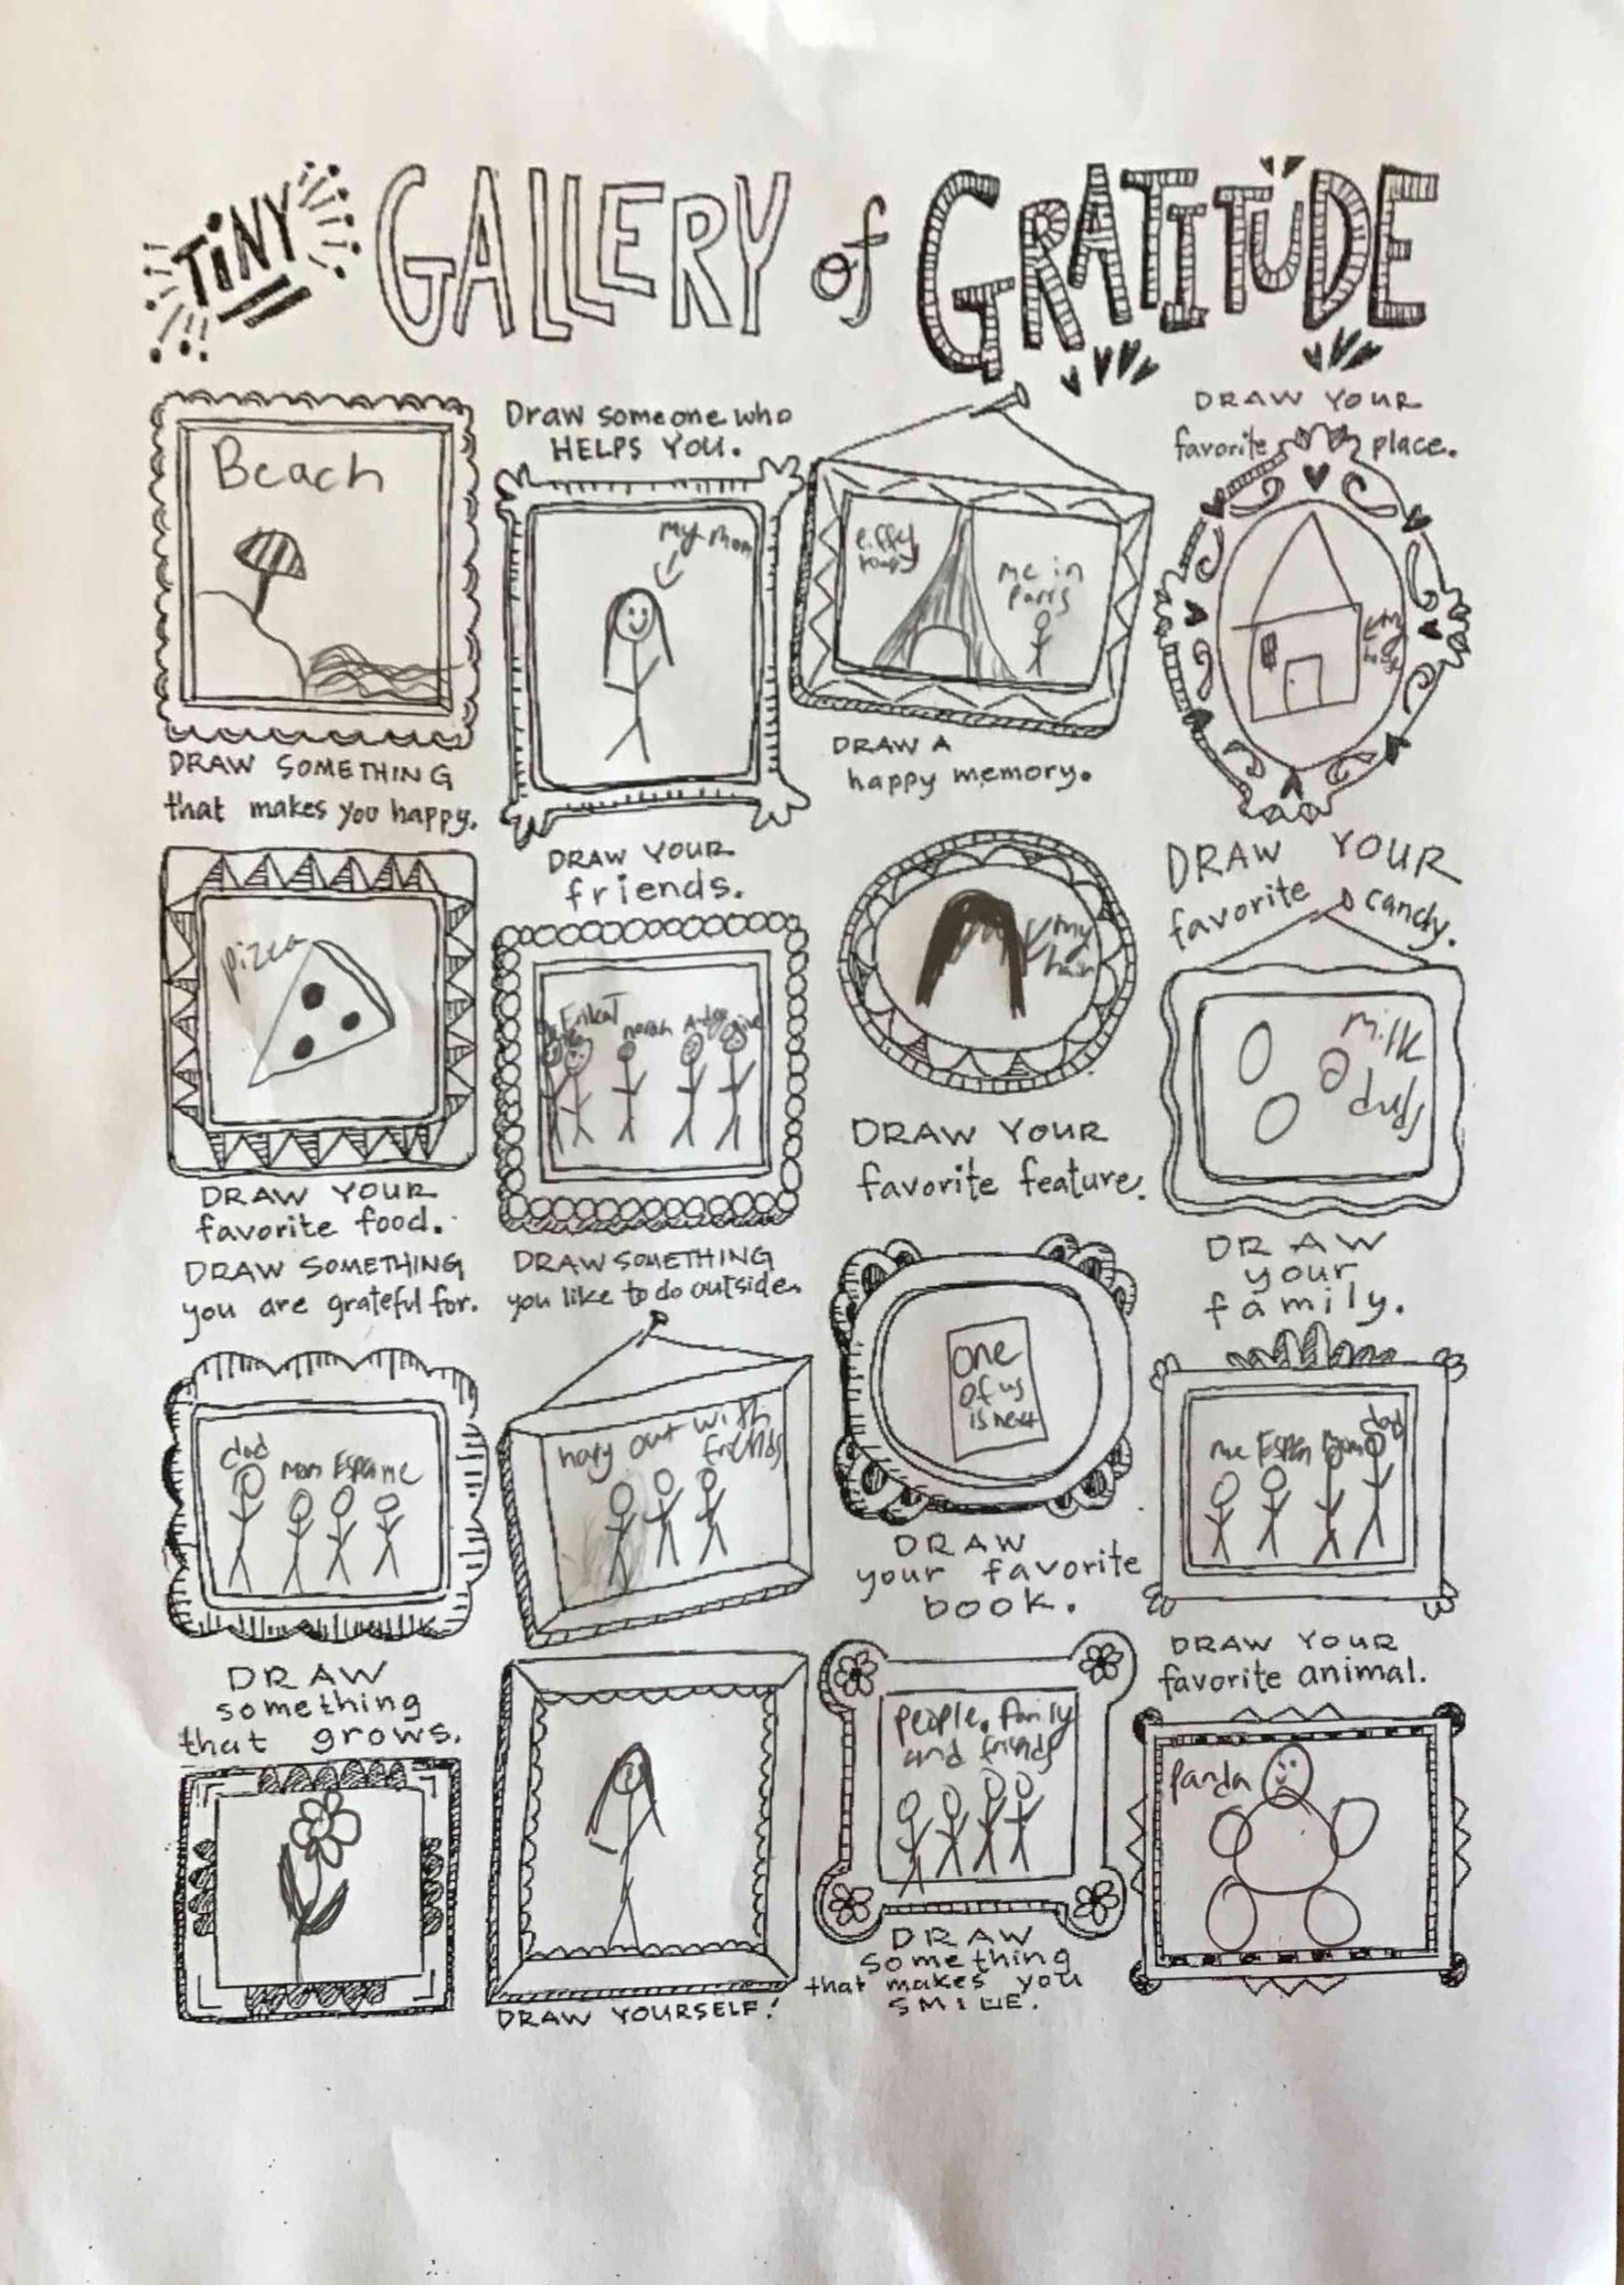 TiNY GALLERY of GRATITUDE
Beach
DRAW SOMETHING
that makes you happy.
Draw someone who
HELPS YOU.
My mom
me in
Paris
DRAW A
happy memory.
DRAW YOUR
favorite place.
my
pizza
DRAW YOUR
favorite food.
DRAW YOUR
friends.
norah
my
hair
DRAW YOUR
favorite feature.
DRAW YOUR
favorite candy.
Milk
duds
DRAW SOMETHING
you are grateful for.
dad
mom
me
DRAW SOMETHING
you like to do outside.
out with
friends
One
of us
is next
DRAW
your favorite
book.
DRAW
your
family.
me
dad
DRAW
something
that grows.
DRAW YOURSELF!
People, family
and friends
DRAW
something
that makes you
SMILE.
DRAW YOUR
favorite animal.
panda